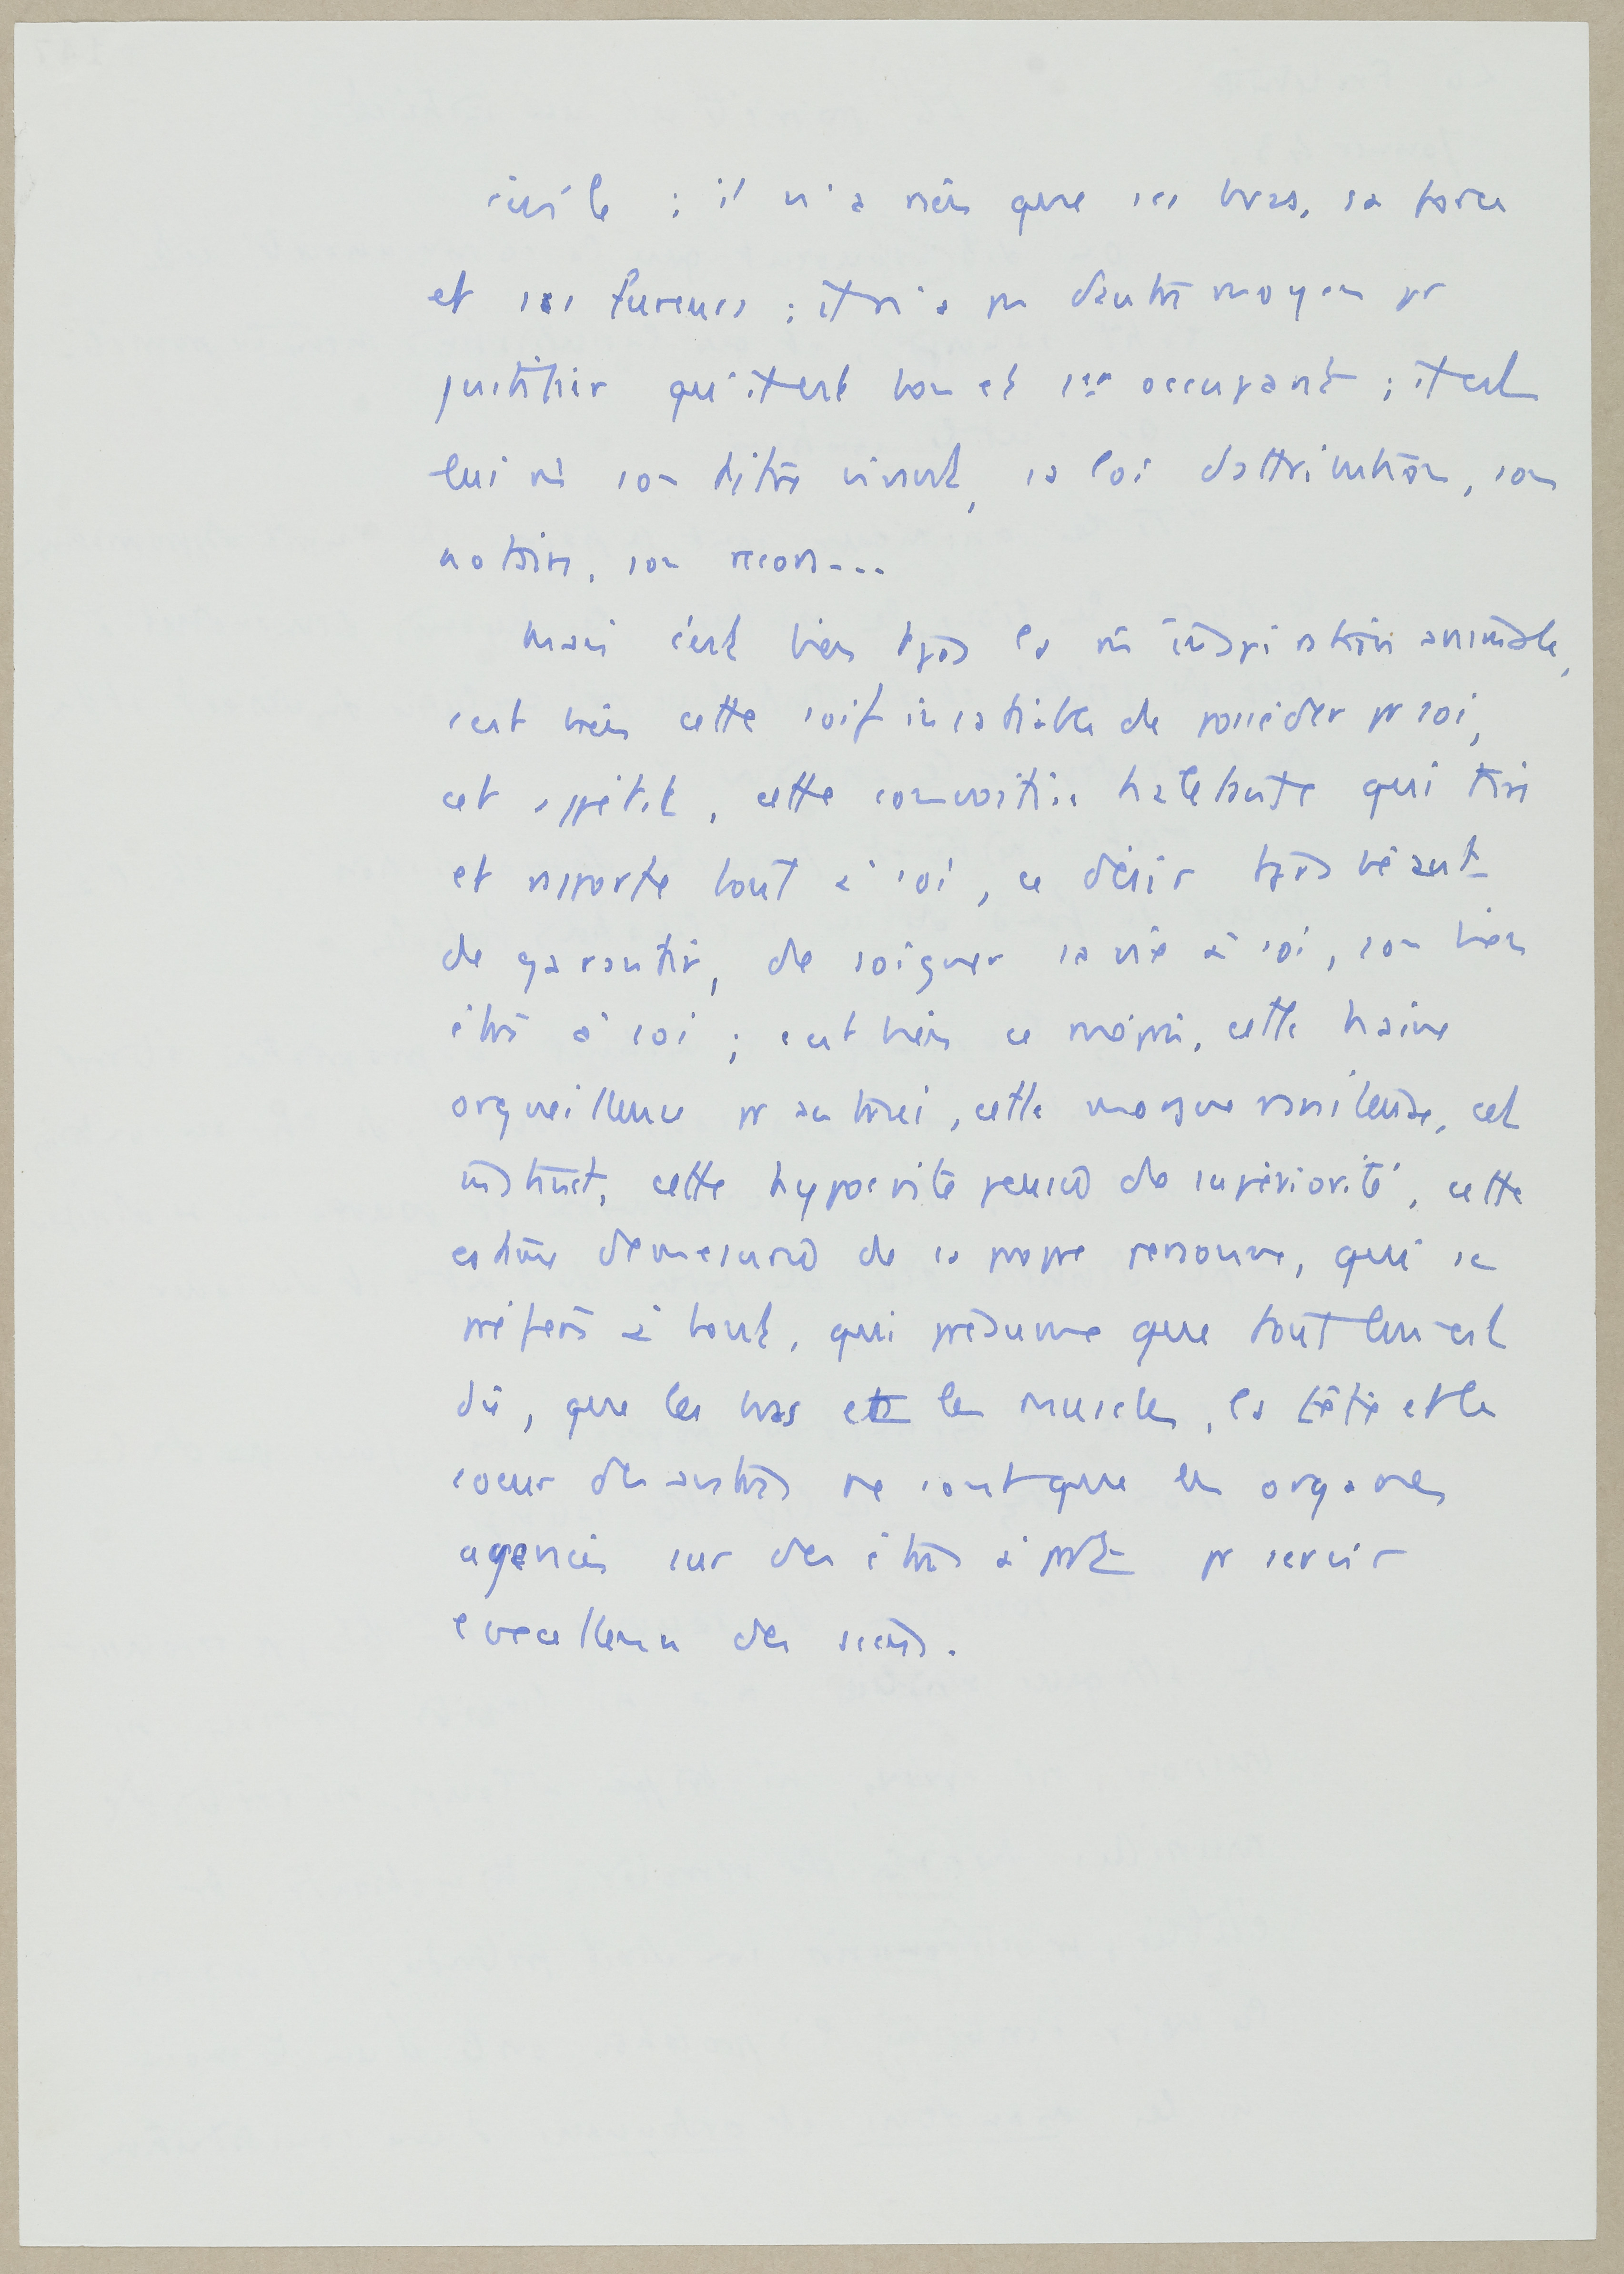 civile ; il n'a rien que ses bras, sa force
et ses fureurs ; il n'a pr d'autre moyen pr
justifier qu'il est bon et 1er occupant ; il est
lui mê son titre vivant, sa loi d'attribution, son
notaire, son
Mais c'est bien tjrs la mê inspiration animale,
c'est bien cette soif insatiable de posséder pr soi,
cet appétit, cette convoitise haletante qui tire
et rapporte tout à soi, ce désir tjrs béant
de garantir, de soigner sa vie à soi, son bien
être à soi ; c'est bien ce mépris, cette haine
orgueilleuse pr autrui, cette morgue vaniteuse, cet
instinct, cette hypocrite pensée de supériorité, cette
estime démesurée de sa propre personne, qui se
préfère à tout, qui présume que tout lui est
dû, que les bras et les muscles, la tête et le
coeur des autres ne sont que les organes
agencés sur des êtres à pt pr servir
excellence des siens.